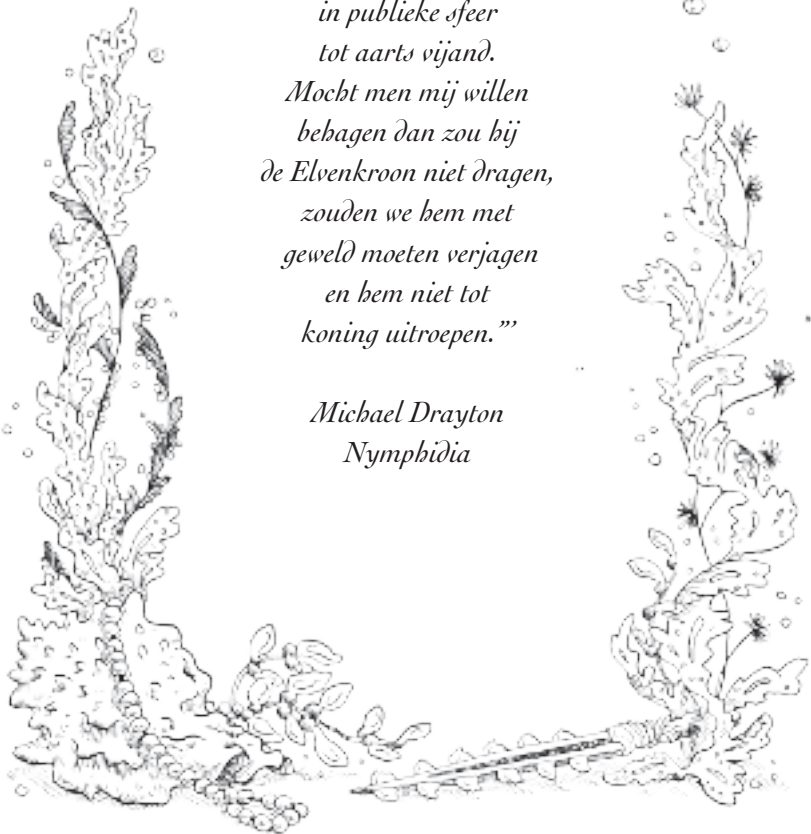 in publieke sfeer
tot aarts vijand.
Mocht men mij willen
behagen dan zou hij
de Elvenkroon niet dragen,
zouden we hem met
geweld moeten verjagen
en hem niet tot
koning uitroepen.”’
Michael Drayton
Nymphidia